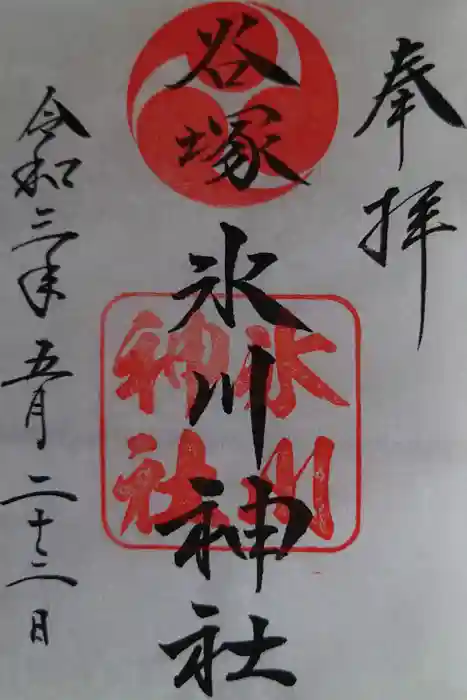 奉拝
谷塚氷川神社
氷川神社
令和三年五月二十三日